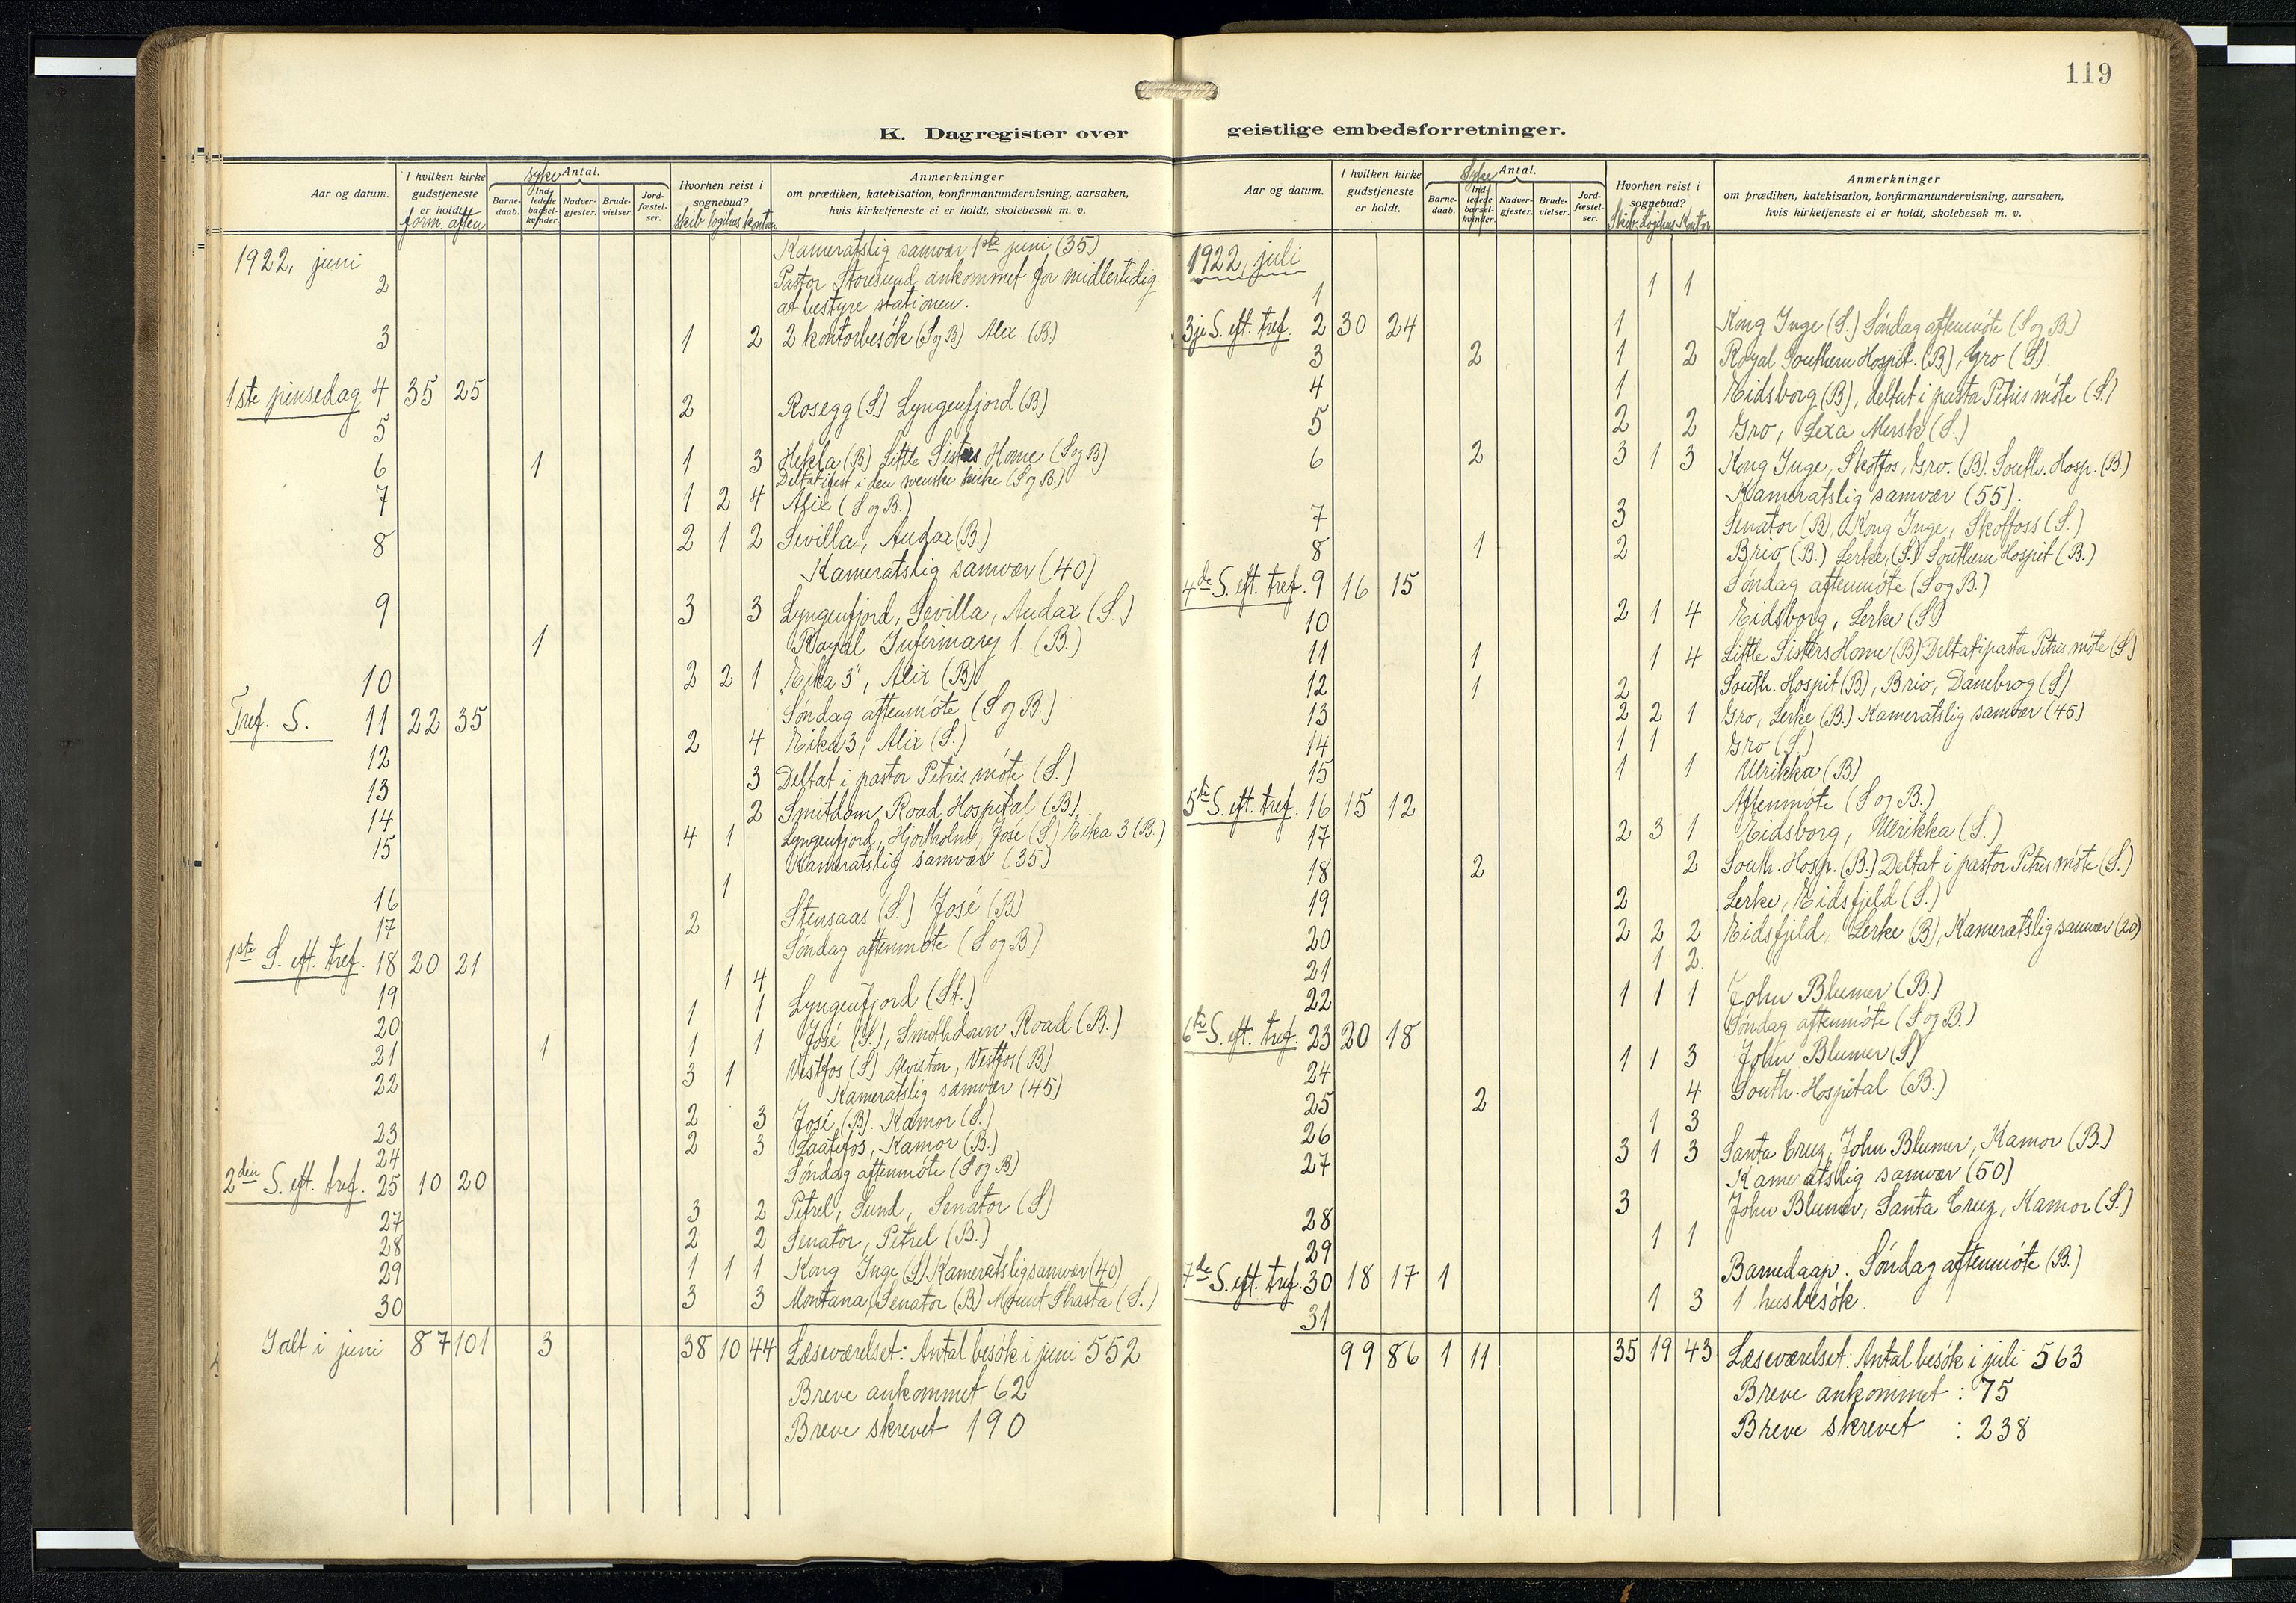 119
K. Dagregister over geistlige embedsforretninger.
Aar og datum. I hvilken kirke gudstjeneste er holdt. form. aften Syke Antal. Barnedaab. Indledede barselkvinder. Nadvergjester. Brudevielser. Jordfæstelser. Hvorhen reist i sognebud? Skib logihus kontor Anmerkninger om prædiken, katekisation, konfirmantundervisning, aarsaken, hvis kirketjeneste ei er holdt, skolebesøk m. v.
1922, juni Kameratslig samvær 1ste juni (35)
2 Pastor Storesund ankommet for midlertidig
at bestyre stationen.
3 1 2 2 kontorbesök (S og B) Alix. (B)
1ste pinsedag 4 35 25
5 2 Rosegg (S) Lyngenfjord (B)
6 1 1 3 Hekla (B) Little Sisters Home (S og B)
Deltat i fest i den svenske kirke (S og B.)
7 1 2 4 Alix (S og B.)
8 2 1 2 Sevilla, Audax (B.)
Kameratslig samvær (40)
9 3 3 Lyngenfjord, Sevilla, Audax (S.)
1 Royal Infirmary 1. (B.)
10 2 2 1 "Eika 3", Alix (B)
Tref. S. 11 22 35 Söndag aftenmöte (S og B.)
12 2 4 Eika 3, Alix (S.)
13 3 Deltat i pastor Petris möte (S.)
14 2 Smitdom Road Hospital (B)
15 4 1 Lyngenfjord, Hjortholm, José (S) Eika 3 (B.)
Kameratslig samvær (35)
16 1
17 2 Stensaas (S.) José (B)
1ste S. eft. tref. 18 20 21 Söndag aftenmöte (S og B.)
19 1 4
20 1 1 Lyngenfjord (St.)
21 1 1 1 José (S.), Smithdown Road (B.)
22 3 1 Vestfos (S) Alviston, Vestfos (B)
Kameratslig samvær (45)
23 2 3 José (B). Kamor (S.)
24 2 3 Laatefos, Kamor (B.)
2den S. eft. tref. 25 10 20 Söndag aftenmöte (S og B)
27 3 2 Petrel, Sund, Senator (S)
28 2 2 Senator, Petrel (B.)
29 1 1 1 Kong Inge (S) Kameratslig samvær (40)
30 3 3 Montana, Senator (B) Mount Shasta (S.)
Ialt i juni 87 101 3 38 10 44 Læseværelset: Antal besök i juni 552
Breve ankommet 62
Breve skrevet 190
Aar og datum. I hvilken kirke gudstjeneste er holdt. Syke Antal. Barnedaab. Indledede barselkvinder. Nadvergjester. Brudevielser. Jordfæstelser. Hvorhen reist i sognebud? Skib Logihus Kontor Anmerkninger om prædiken, katekisation, konfirmantundervisning, aarsaken, hvis kirketjeneste ei er holdt, skolebesøk m. v.
1922, juli
1 1 1
3je S. eft. tref. 2 30 24 1 Kong Inge (S.) Söndag aftenmöte (S og B)
3 2 1 2 Royal Southern Hospit. (B), Gro (S).
4 1 Eidsborg (B), deltat i pastor Petris möte (S.)
5 2 2 Gro, Lexa Mersk (S.)
6 2 3 1 3 Kong Inge, Skotfos, Gro. (B). South. Hosp. (B.)
Kameratslig samvær (55).
7 3 Senator (B), Kong Inge, Skotfoss (S.)
8 1 2 Brio (B.) Lerke, (S.) Southern Hospit (B.)
4de S. eft. tref. 9 16 15 Söndag aftenmöte (S og B.)
10 2 1 4 Eidsborg, Lerke (S)
11 1 1 4 Little Sisters Home (B) Deltat i pastor Petris möte (S)
12 1 2 South. Hospit (B), Brio, Danebrog (S)
13 2 2 1 Gro, Lerke (B.) Kameratslig samvær (45)
14 1 1 Gro (S.)
15 1 1 Ulrikka (B)
5te S. eft. tref. 16 15 12 Aftenmöte (S og B.)
17 2 3 1 Eidsborg, Ulrikka (S.)
18 2 2 South. Hosp. (B.) Deltat i pastor Petris möte (S.)
19 2 Lerke, Eidsfjeld (S.)
20 2 2 2 Eidsfjeld, Lerke (B), Kameratslig samvær (20)
21 1 2
22 1 1 1 John Blumer (B.)
6te S. eft. tref. 23 20 18 Söndag aftenmöte (S og B.)
24 1 1 3 John Blumer (S)
25 2 4 South. Hospital (B.)
26 1 3
27 3 1 3 Santa Cruz, John Blumer, Kamor (B.)
Kameratslig samvær (50)
28 3 John Blumer, Santa Cruz, Kamor (S.)
29 1 1
7de S. eft. tref. 30 18 17 1 Barnedaap. Söndag aftenmöte (B.)
31 1 3 1 husbesök.
99 86 1 11 35 19 43 Læseværelset: Antal besök i juli 563
Breve ankommet : 75
Breve skrevet : 238